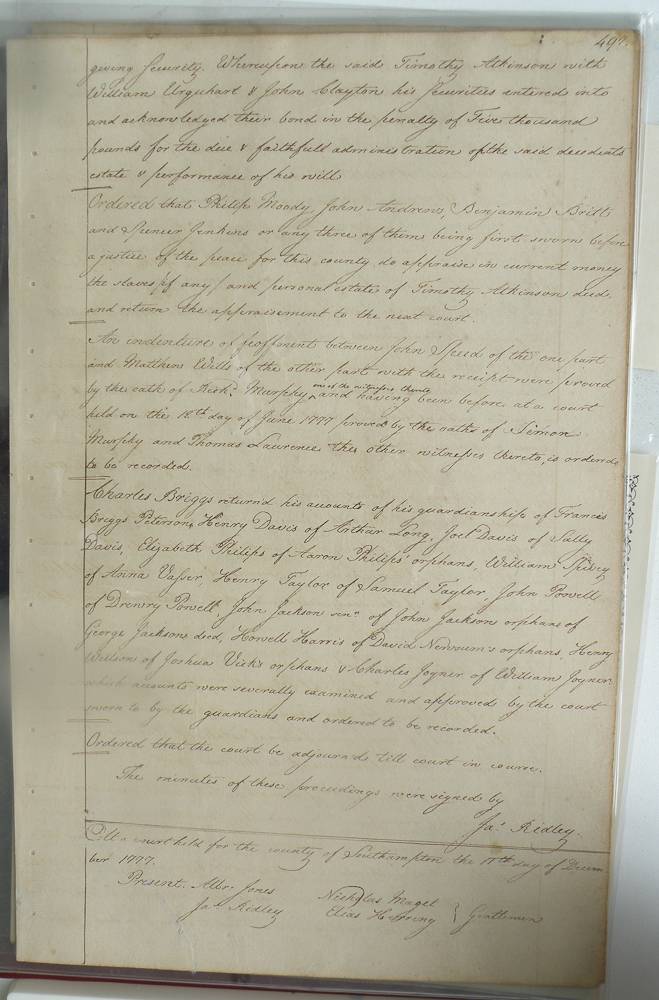 497.
giving security. Whereupon the said Timothy Atkinson with
William Urquhart & John Clayton his Securities entered into
and acknowledged their bond in the penalty of Five thousand
pounds for the due & faithfull administration of the said decedents
estate & performance of his will
Ordered that Philip Moody, John Andrews, Benjamin Britt
and Spencer Jenkins or any three of them being first sworn before
a justice of the peace for this county do appraise in current money
the slaves (if any) and personal estate of Timothy Atkinson decd.
and return the appraisement to the next court.
An indenture of feoffment between John Speed of the one part
and Matthew Wills of the other part with the receipt were proved
one of the witnesses thereto
by the oath of Rich.d Murphy and having been before at a court
held on the 12th day of June 1777 proved by the oaths of Simon
Murphy and Thomas Lawrence the other witnesses thereto, is ordered
to be recorded.
Charles Briggs return'd his accounts of his guardianship of Francis
Briggs Peterson, Henry Davis of Arthur Long, Joel Davis of Sally
Davis, Elizabeth Philips of Aaron Philips' orphans, William Spivey
of Anna Vasser, Henry Taylor of Samuel Taylor, John Powell
of Drewry Powell, John Jackson senr. of John Jackson orphan of
George Jackson decd, Howell Harris of David Newsum's orphans, Henry
Wilson of Joshua Vick's orphans & Charles Joyner of William Joyner
which accounts were severally examined and approved by the court
sworn to by the guardians and ordered to be recorded.
Ordered that the court be adjourn'd till court in course.
The minutes of these proceedings were signed by
Jas. Ridley.
At a court held for the county of Southampton the 11th day of Decem
ber 1777.
Present. Albr. Jones Nicholas Maget
Jas Ridley Elias Herring } Gentlemen